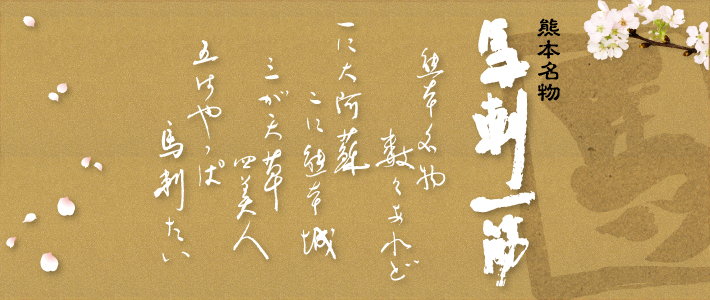 熊本名物
馬刺一筋
熊本名物
数々あれど
一に大阿蘇
二に熊本城
三が天草
四美人
五はやっぱ
馬刺たい